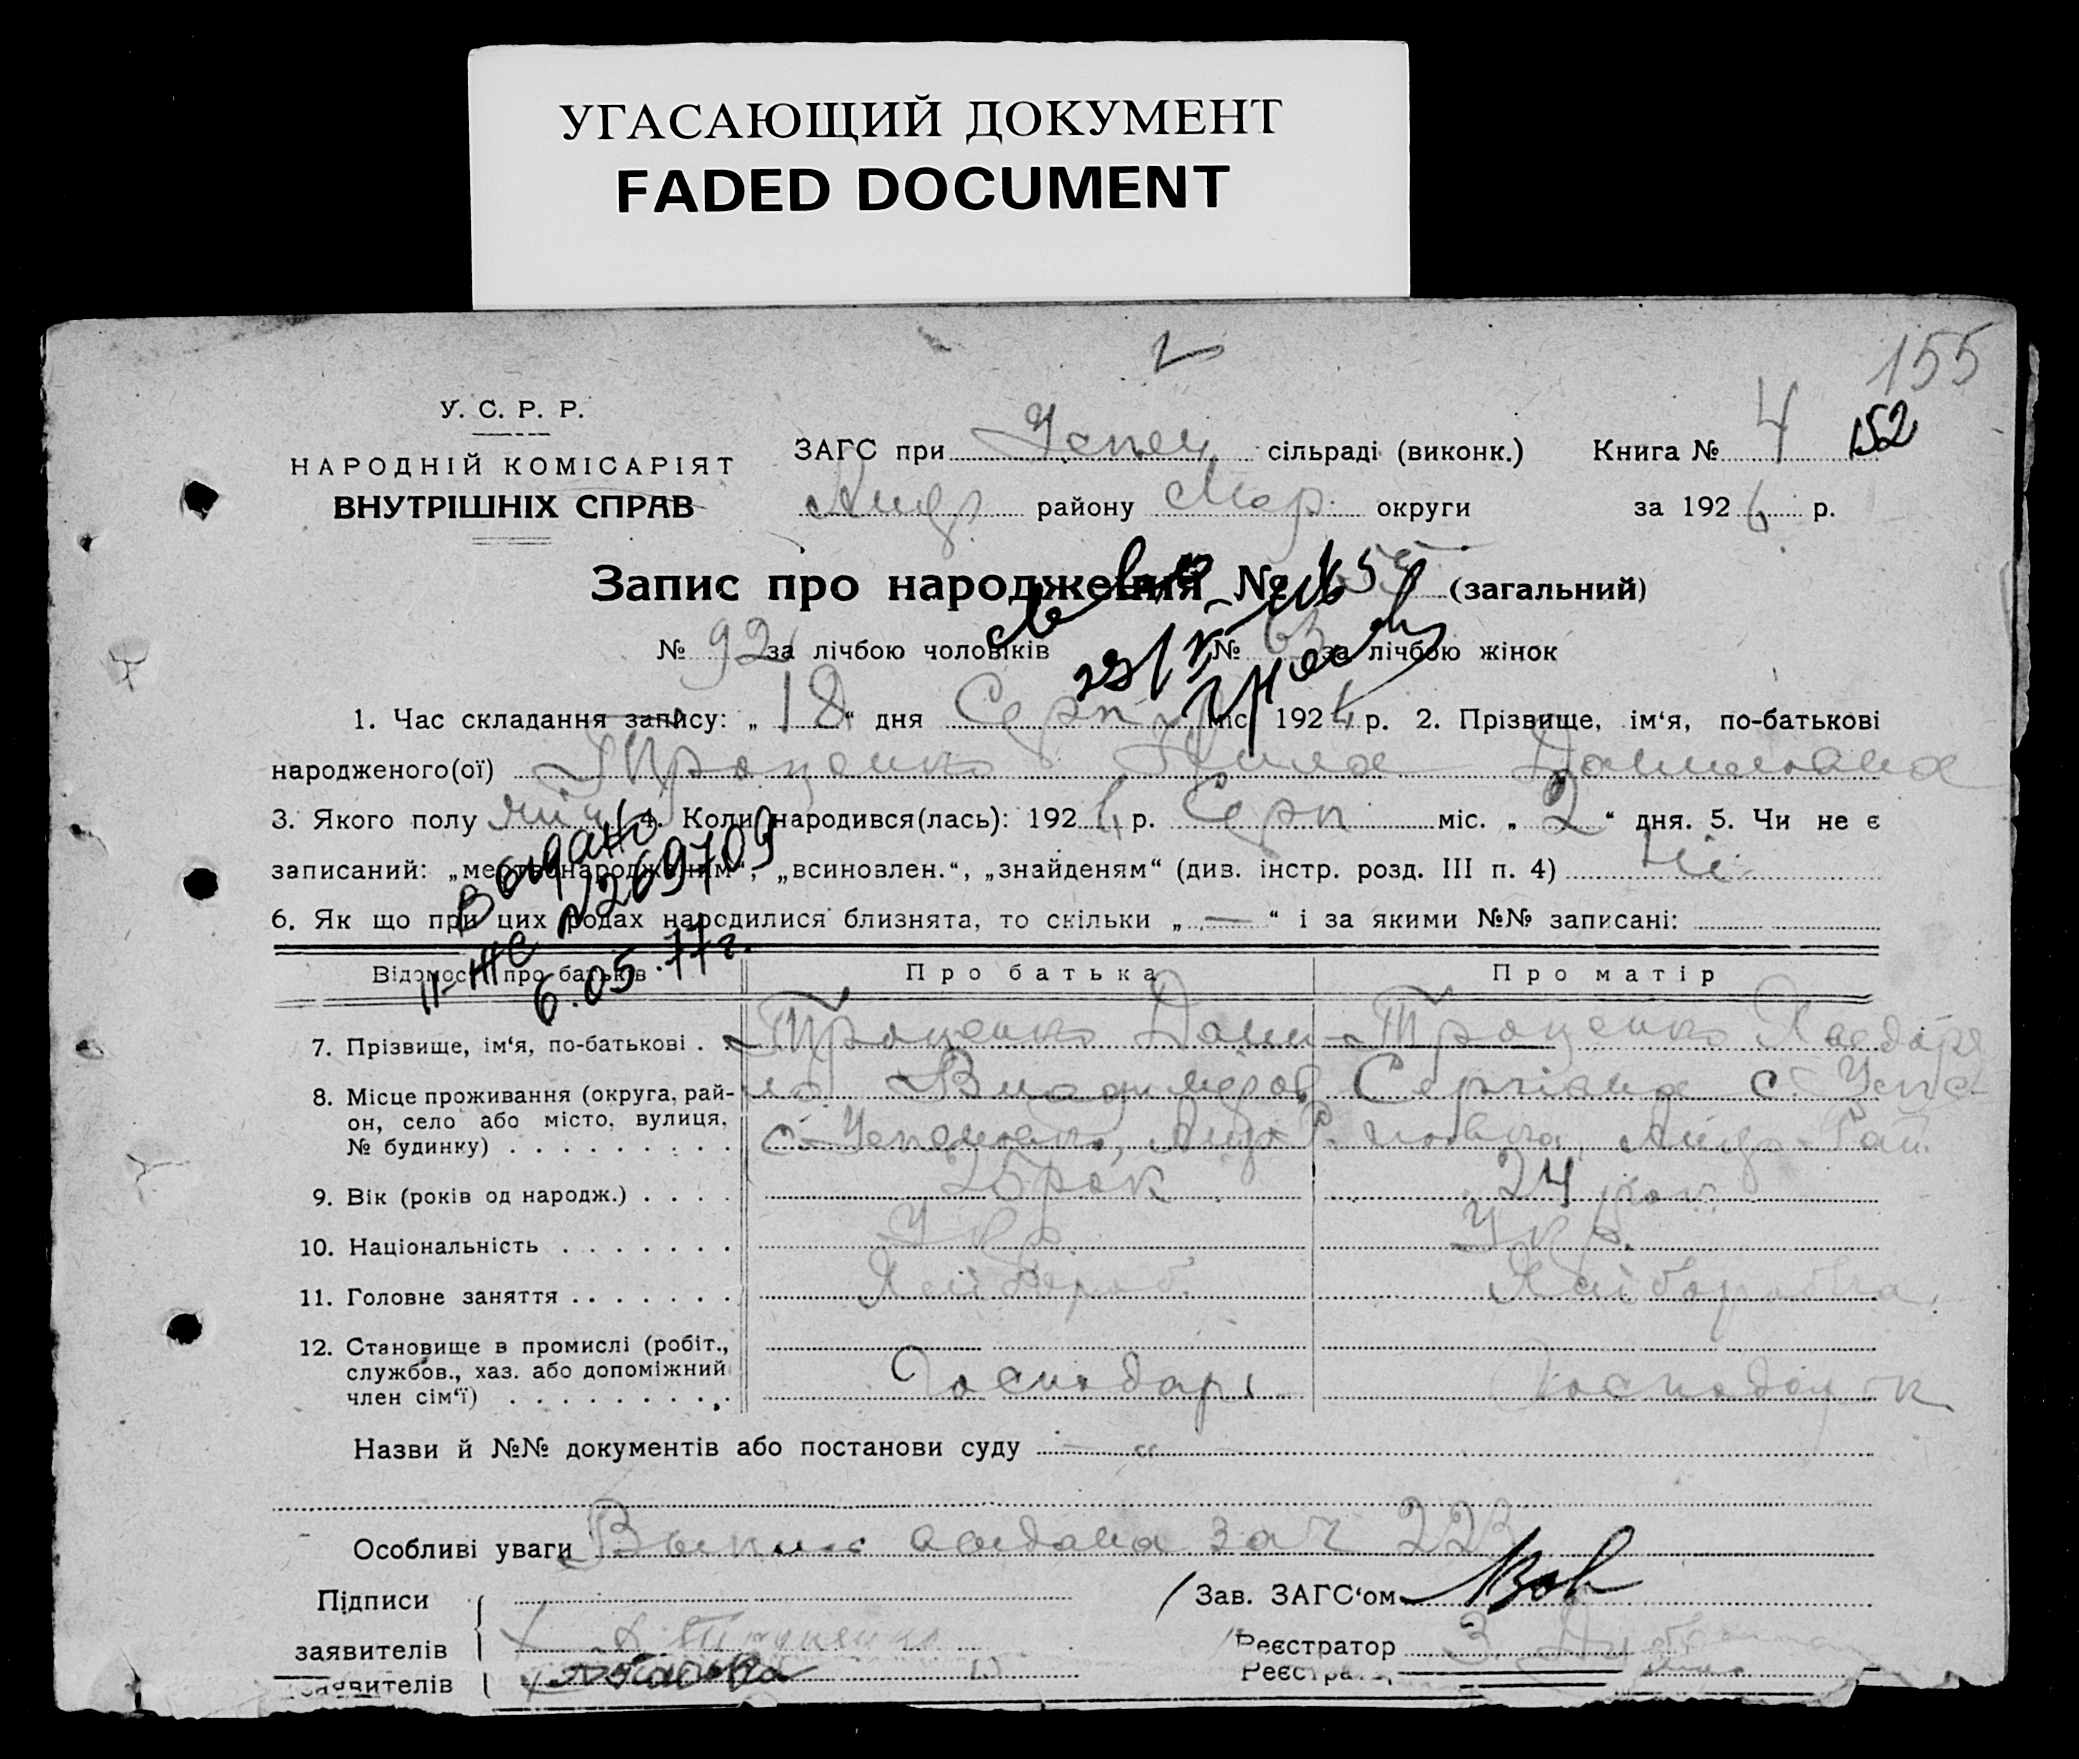 УГАСАЮЩИЙ ДОКУМЕНТ
FADED DOCUMENT
155
152
У. С. Р. Р.
НАРОДНІЙ КОМІСАРІЯТ
ВНУТРІШНІХ СПРАВ
ЗАГС при Успен. сільраді (виконк.) Книга № 4
Андр району Мар. округи за 1926 р.
Запис про народження № 155 (загальний)
№ 92 за лічбою чоловіків № 63 за лічбою жінок
1. Час складання запису: „18“ дня Серпня міс. 1926 р. 2. Прізвище, ім‘я, по-батькові
народженого(ої) Троценко Данилована
3. Якого полу жін. 4. Коли народився(лась): 1926 р. Серп міс. „2“ дня. 5. Чи не є
записаний: „мертвонародженим“, „всиновлен.“, „знайденям“ (див. інстр. розд. III п. 4) Ні
6. Як що при цих родах народилися близнята, то скільки „—“ і за якими №№ записані:
Выдано
II-ЖС №269709
6.05.77г.
Відомості про батьків Про батька Про матір
7. Прізвище, ім‘я, по-батькові . . Троценко Дани- Троценко
8. Місце проживання (округа, рай- ло Владимеров Сергіовна с. Успе-
он, село або місто, вулиця, с. Успеновка, Андр Р. новка, Андр. Рай.
№ будинку) . . . . . . . . .
9. Вік (років од народж.) . . . . 25 рок 24 рок
10. Національність . . . . . . . Укр. Укр.
11. Головне заняття . . . . . . . Хліборобка
12. Становище в промислі (робіт.,
службов., хаз. або допоміжний Господарь
член сім‘ї) . . . . . . . . .
Назви й №№ документів або постанови суду — „
Особливі уваги Выпис выдана за № 223
Підписи Зав. ЗАГС‘ом
заявителів Реєстратор
заявителів Реєстра